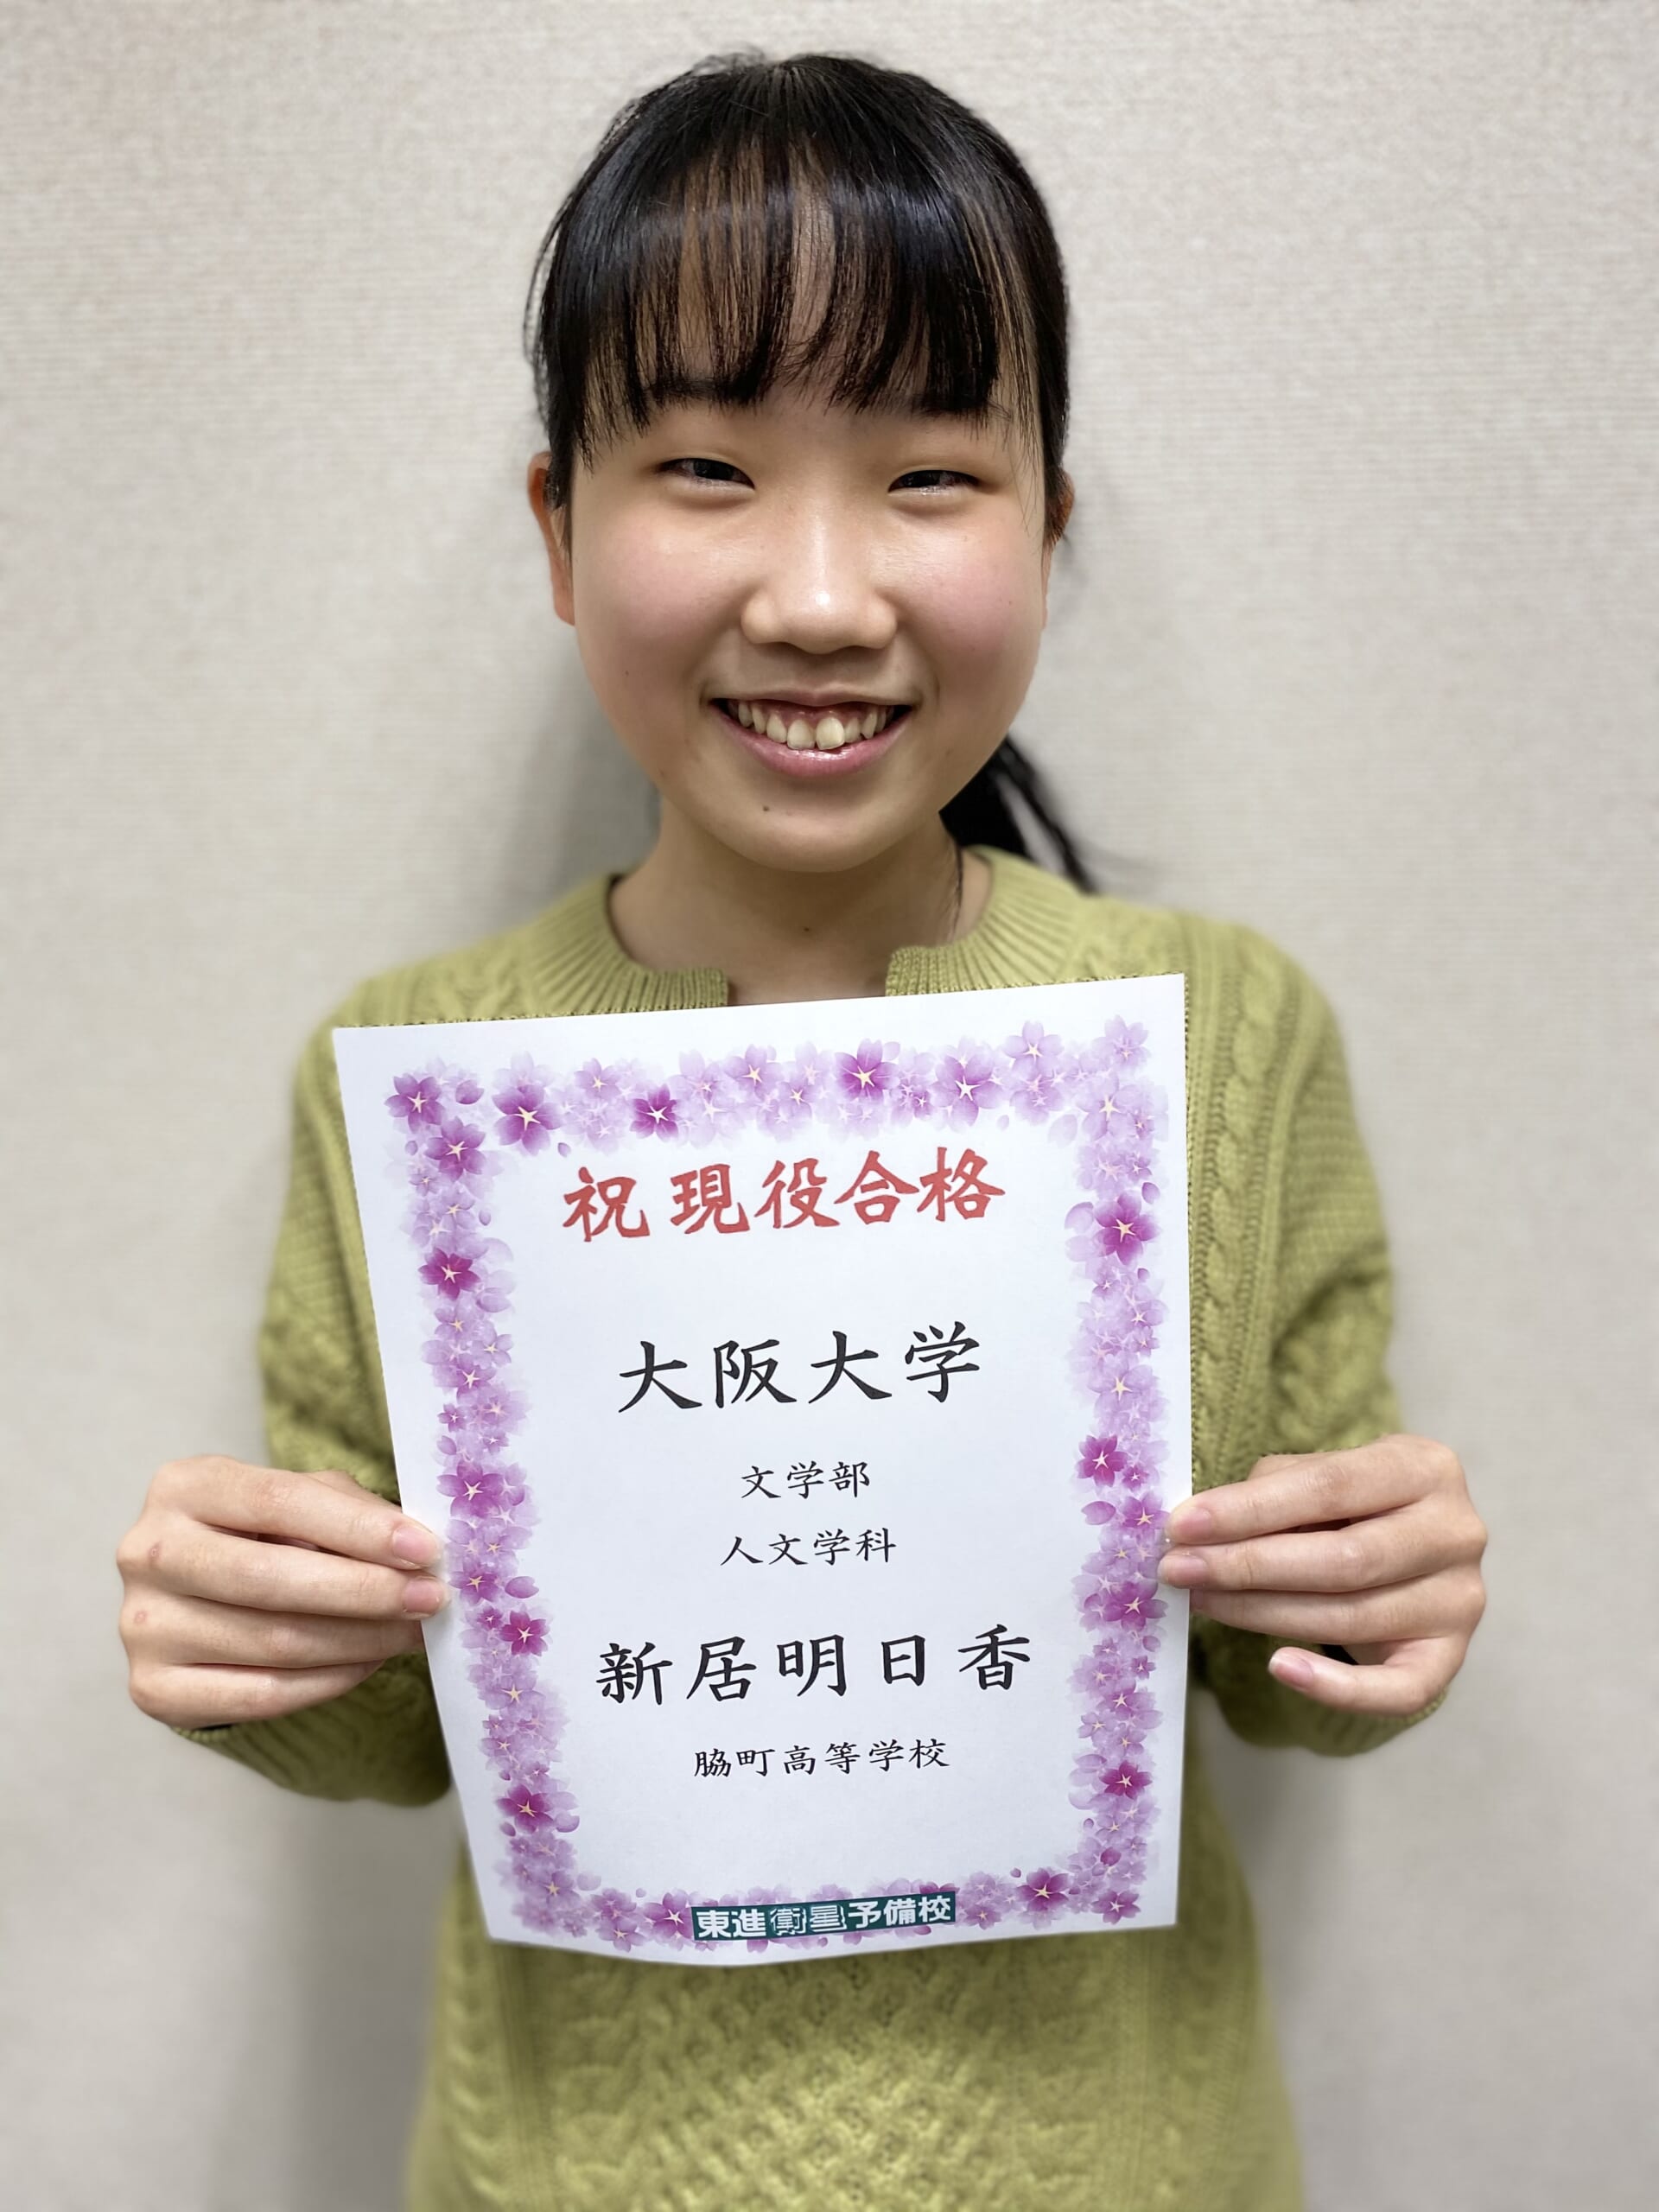 祝 現役合格
大阪大学
文学部
人文学科
新居明日香
脇町高等学校
東進衛星予備校